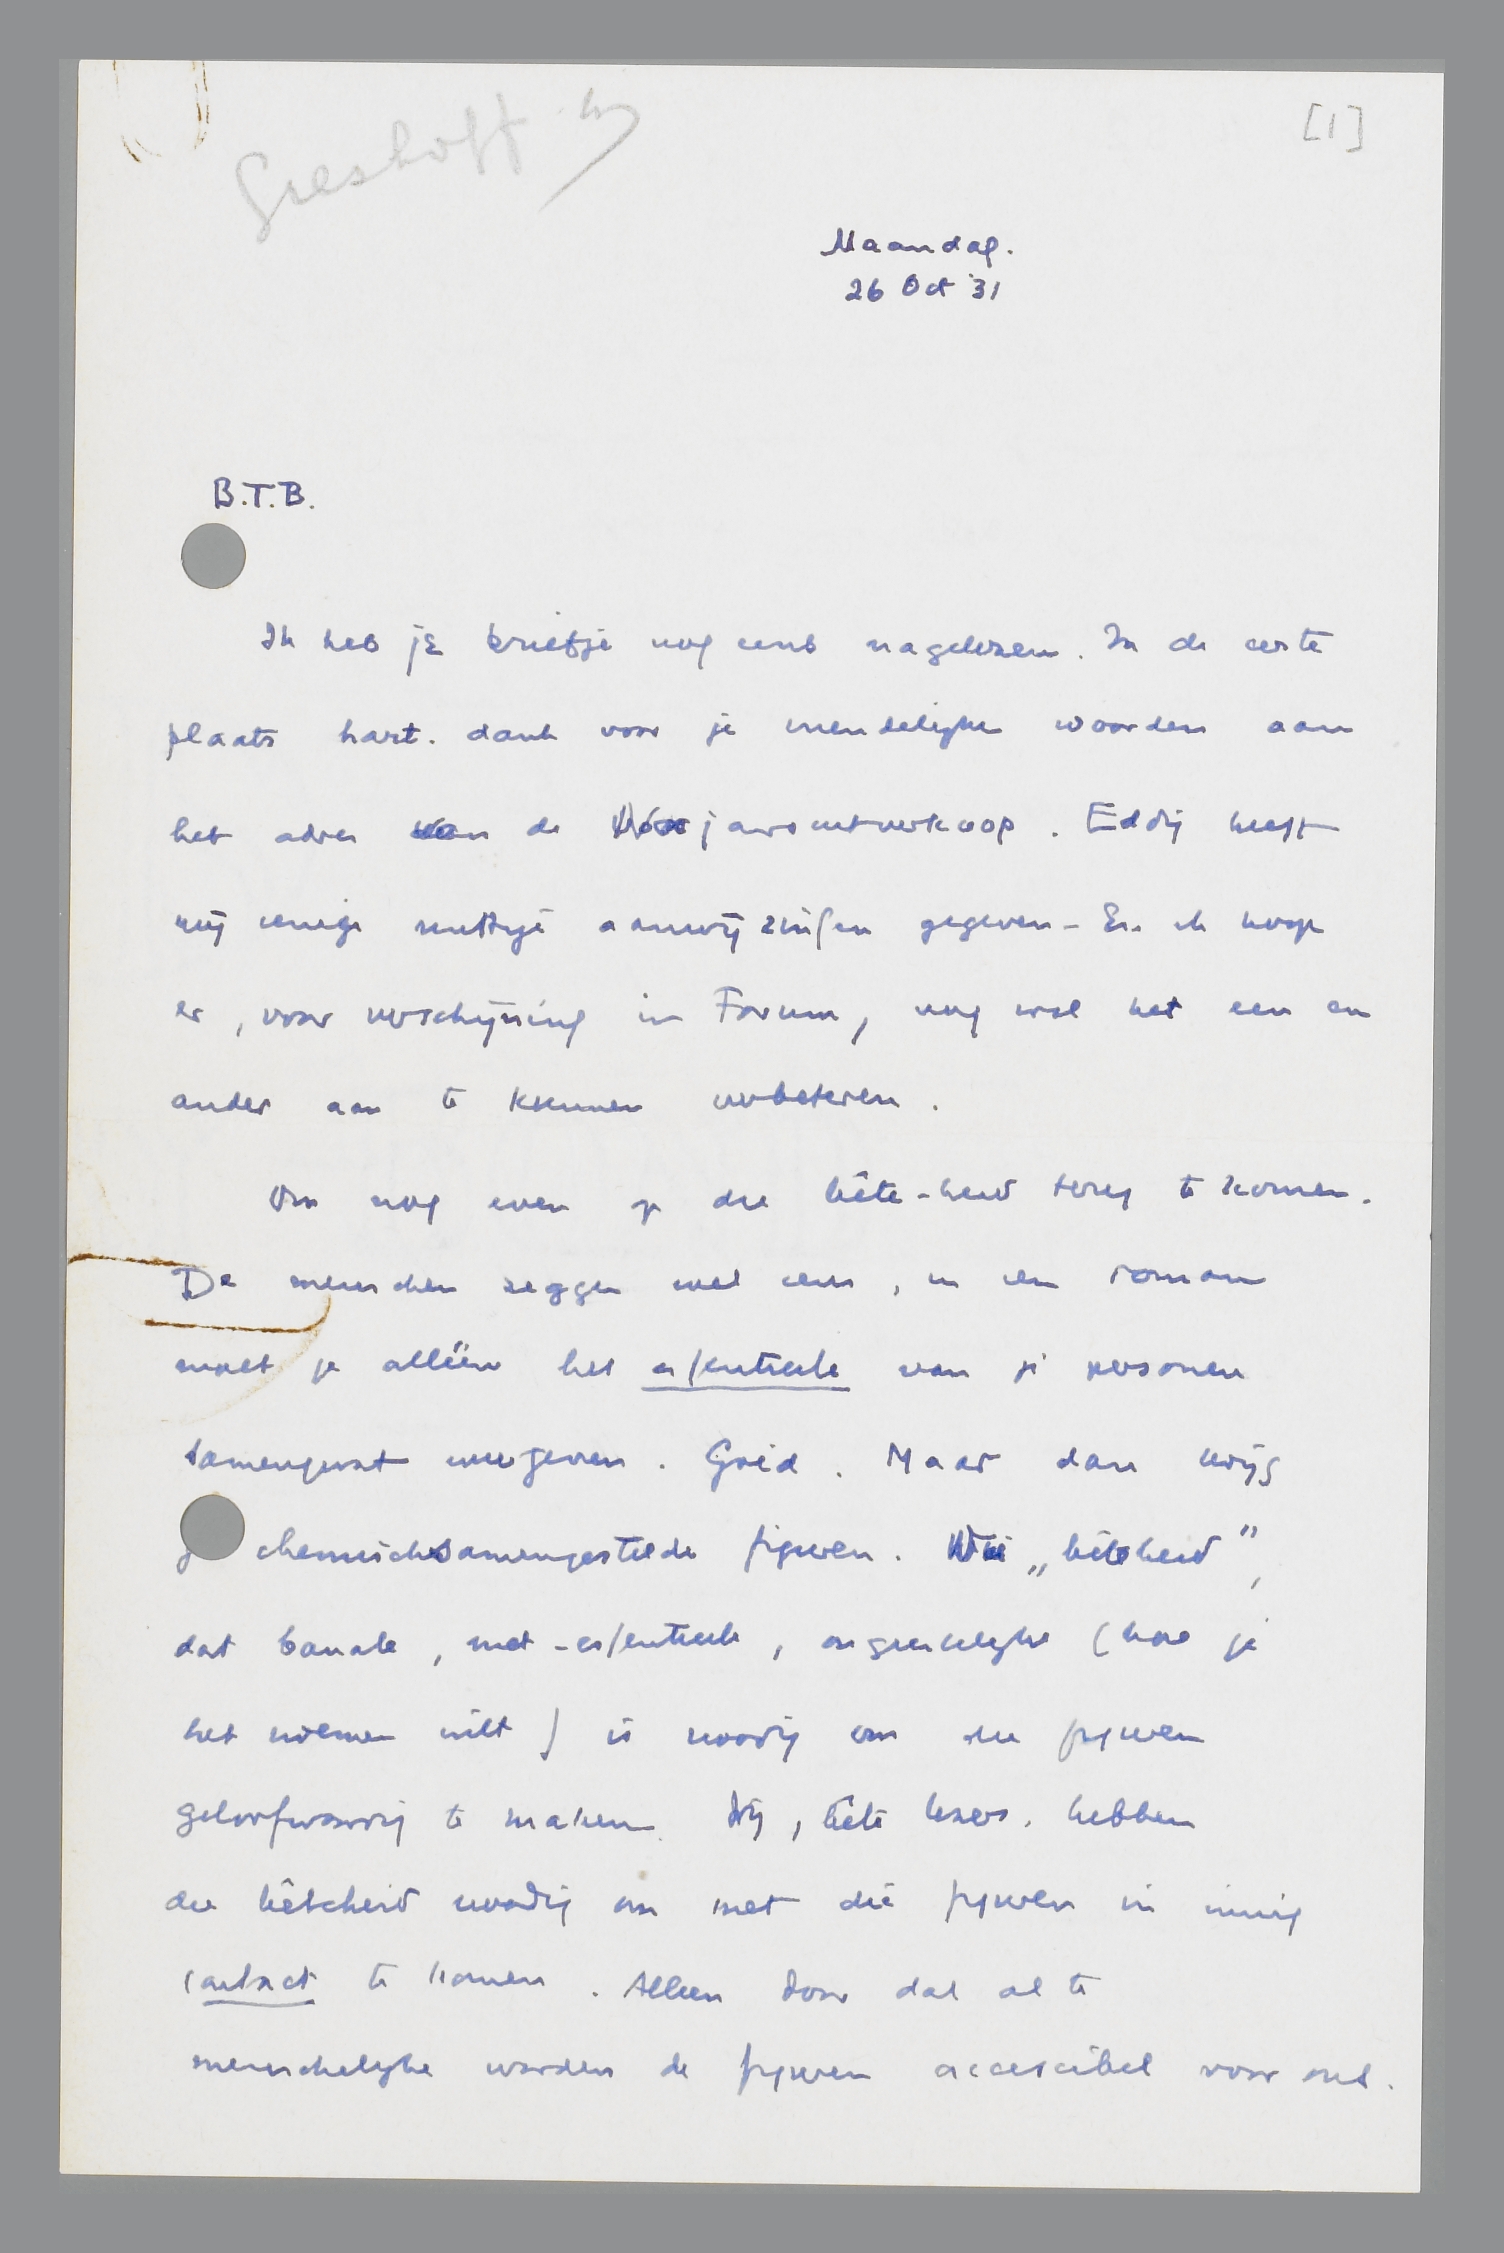 Greshoff
[1]
Maandag.
26 Oct '31
B.T.B.
Ik heb je briefje nog eens nagelezen. In de eerste
plaats hart. dank voor je vriendelijke woorden aan
het adres van de Voorjaarsuitverkoop. Eddy heeft
mij eenige nuttige aanwijzingen gegeven - En ik hoop
er, voor verschijning in Forum, nog wel het een en
ander aan te kunnen verbeteren.
Om nog even op die bête-heid terug te komen.
De menschen zeggen wel eens, in een roman
moet je alléén het essentieele van je personen
samengevat weergeven. Goed. Maar dan krijg
je chemischsamengestelde figuren. Die „bêteheid”,
dat banale, niet-essentieele, (hoe je
het noemen wilt) is noodig om die figuren
geloofwaardig te maken. Wij, bête lezers, hebben
die bêteheid noodig om met die figuren in innig
contact te komen. Alleen door dat al te
menschelijke worden de figuren accessibel voor ons.